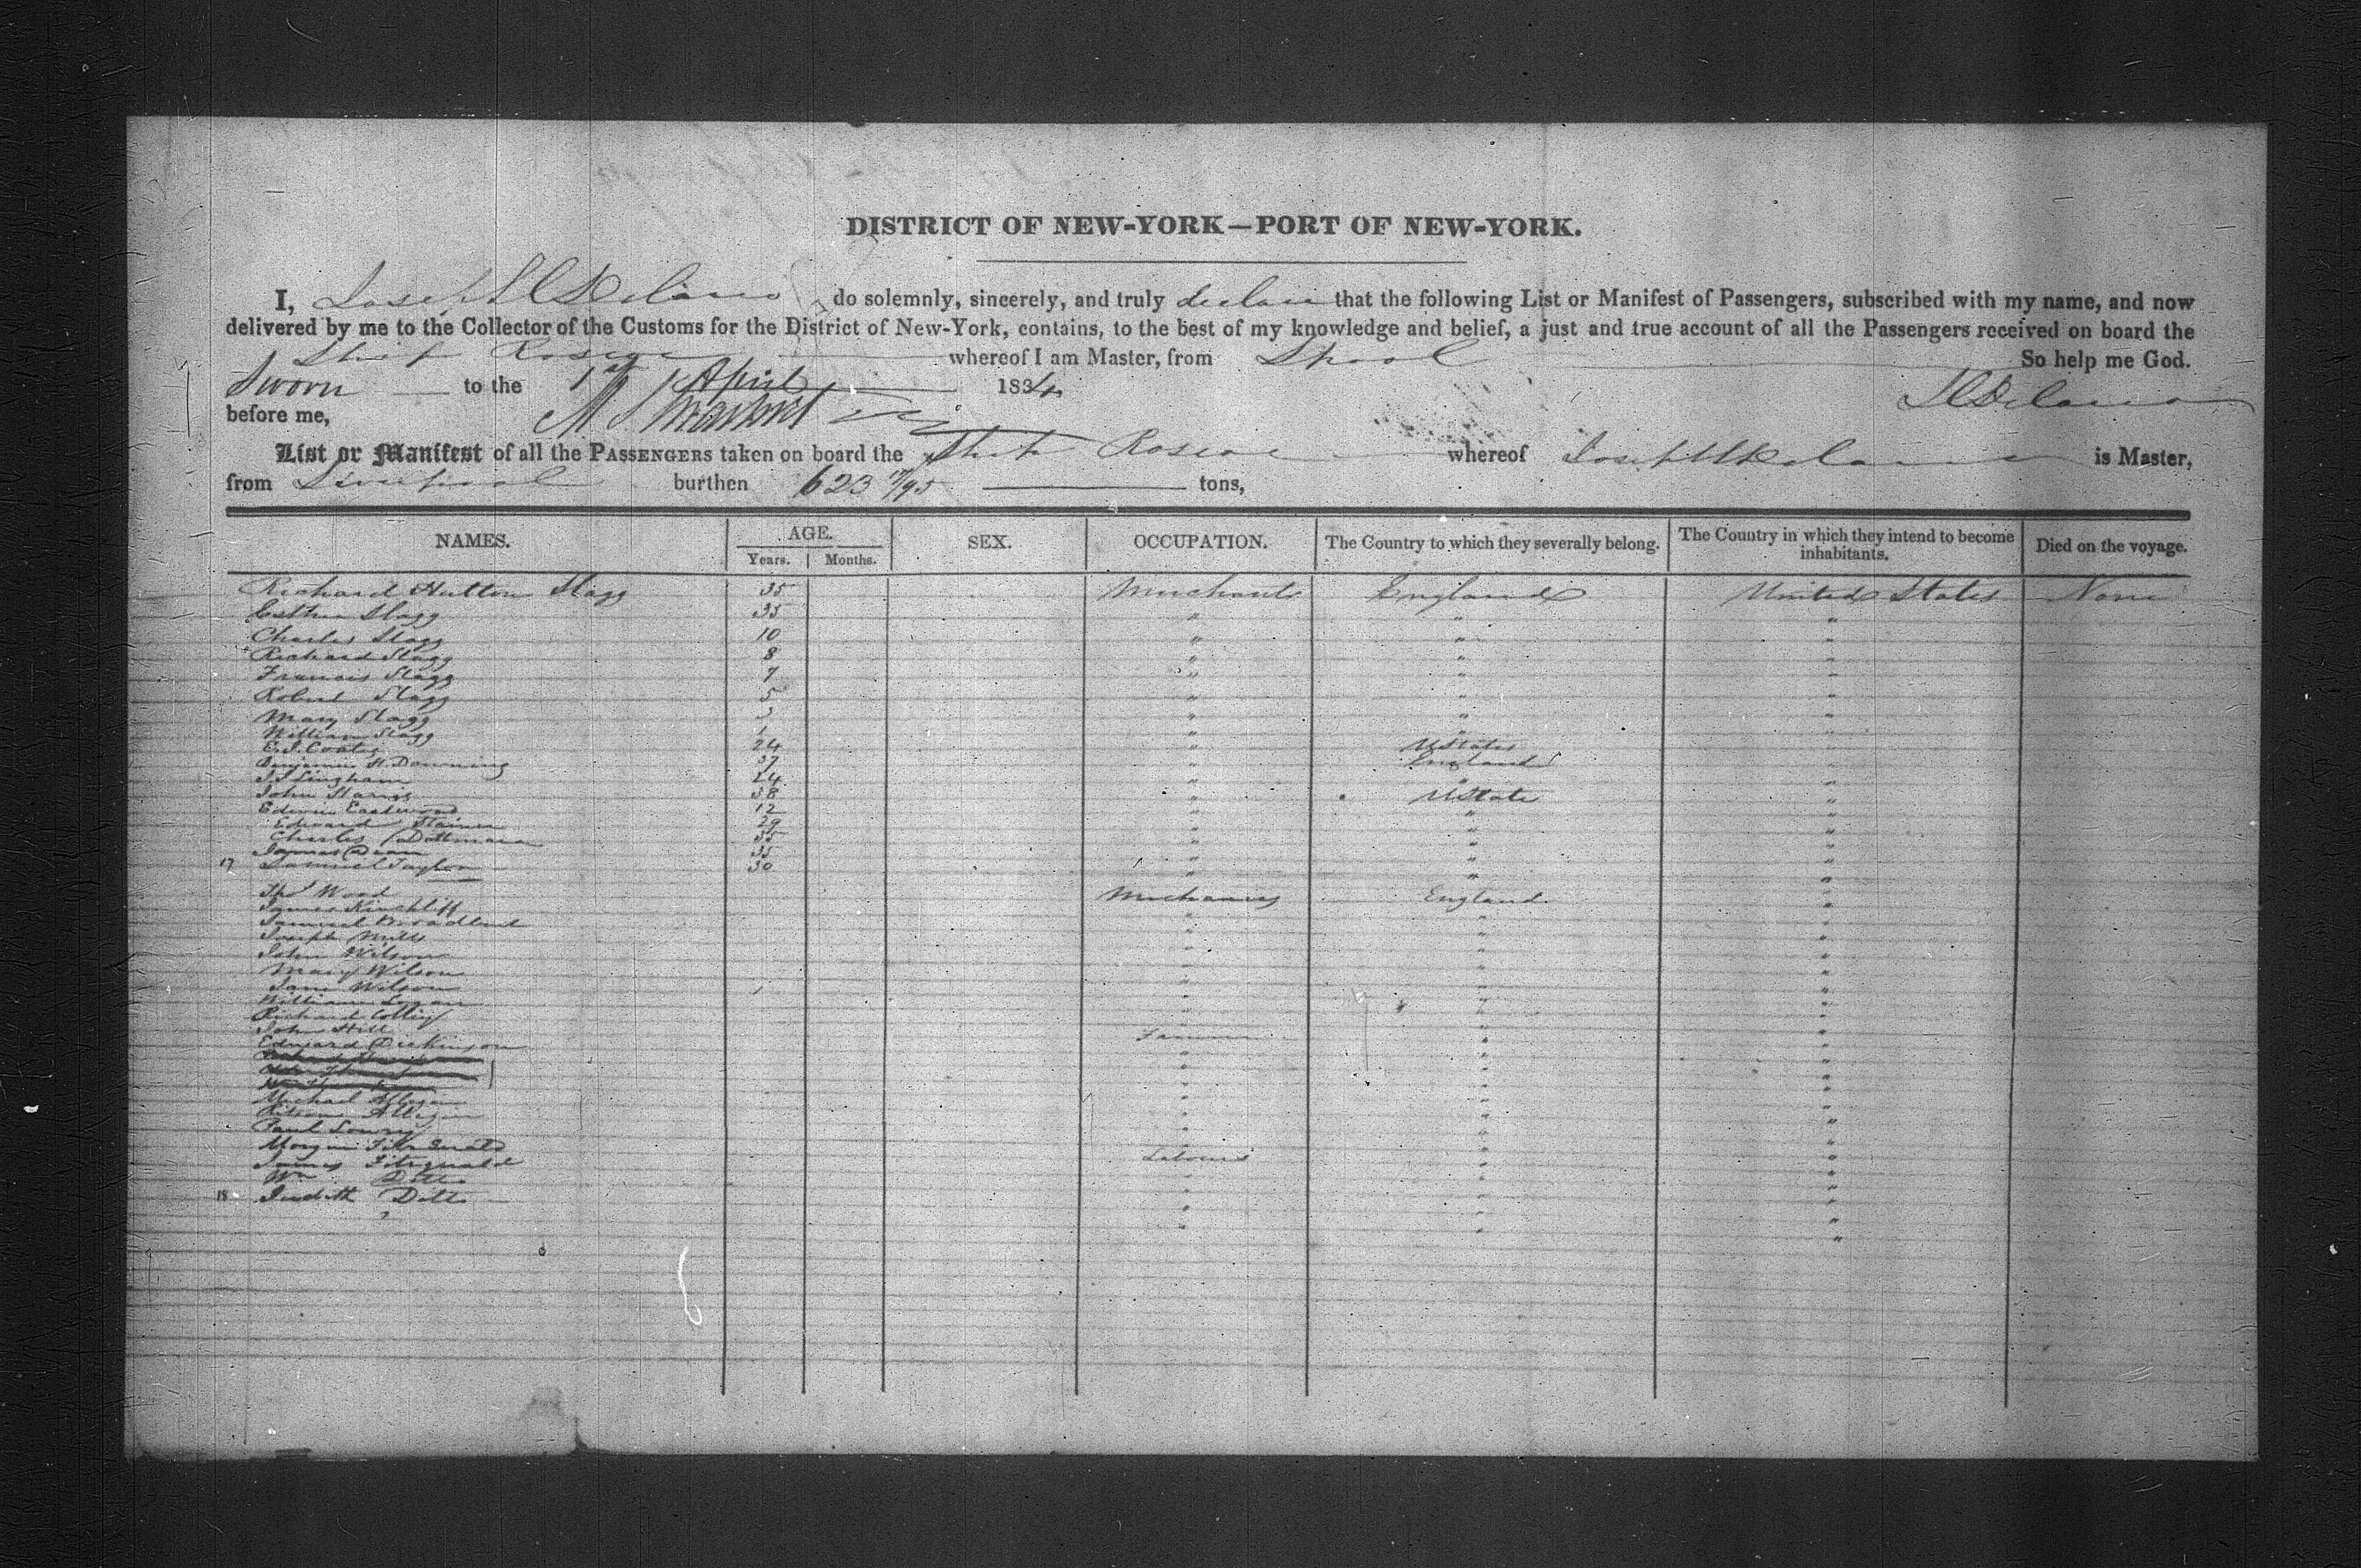 DISTRICT OF NEW-YORK—PORT OF NEW-YORK.
I, Joseph C Delano do solemnly, sincerely, and truly declare that the following List or Manifest of Passengers, subscribed with my name, and now
delivered by me to the Collector of the Customs for the District of New-York, contains, to the best of my knowledge and belief, a just and true account of all the Passengers received on board the
Ship Roscoe whereof I am Master, from Lpool So help me God.
Sworn to the 1st April 1834
before me, J C Delano
List or Manifest of all the PASSENGERS taken on board the Ship Roscoe whereof Joseph C Delano is Master,
from Liverpool burthen 623 17/95 tons,
NAMES. AGE. Years. Months. SEX. OCCUPATION. The Country to which they severally belong. The Country in which they intend to become inhabitants. Died on the voyage.
Richard Hutton Stagg 35 Merchants England United States None
Esther Stagg 35 " " "
Charles Stagg 10 " " "
Richard Stagg 8 " " "
Francis Stagg 7 " " "
Robert Stagg 5 " " "
Mary Stagg 3 " " "
William Stagg 1 " " "
E. J. Coates 24 " UStates "
Benjamin H. Downing 37 " England "
J. S. Lingham 24 " " "
John Harris 38 " UState "
Edwin Eastwood 12 " " "
Edward 29 " " "
Charles 35 " " "
James Dean 35 " " "
17 Samuel Taylor 30 " " "
Thos Wood Mechanics England "
James Hinchliff " " "
Samuel Broadbent " " "
Joseph Mills " " "
John Wilson " " "
Mary Wilson " " "
Jane Wilson " " "
William Logan " " "
Richard " " "
John Hill " " "
Edward Dickinson Farmer " "
Michael " " "
" " "
Paul Lowry " " "
Morgan Fitzgerald " " "
James Fitzgerald Labourers " "
Wm Ditto " " "
18 Judith Ditto " " "